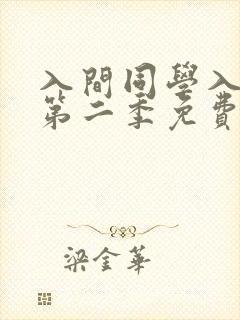 入間同學入
第二季免費
梁金華